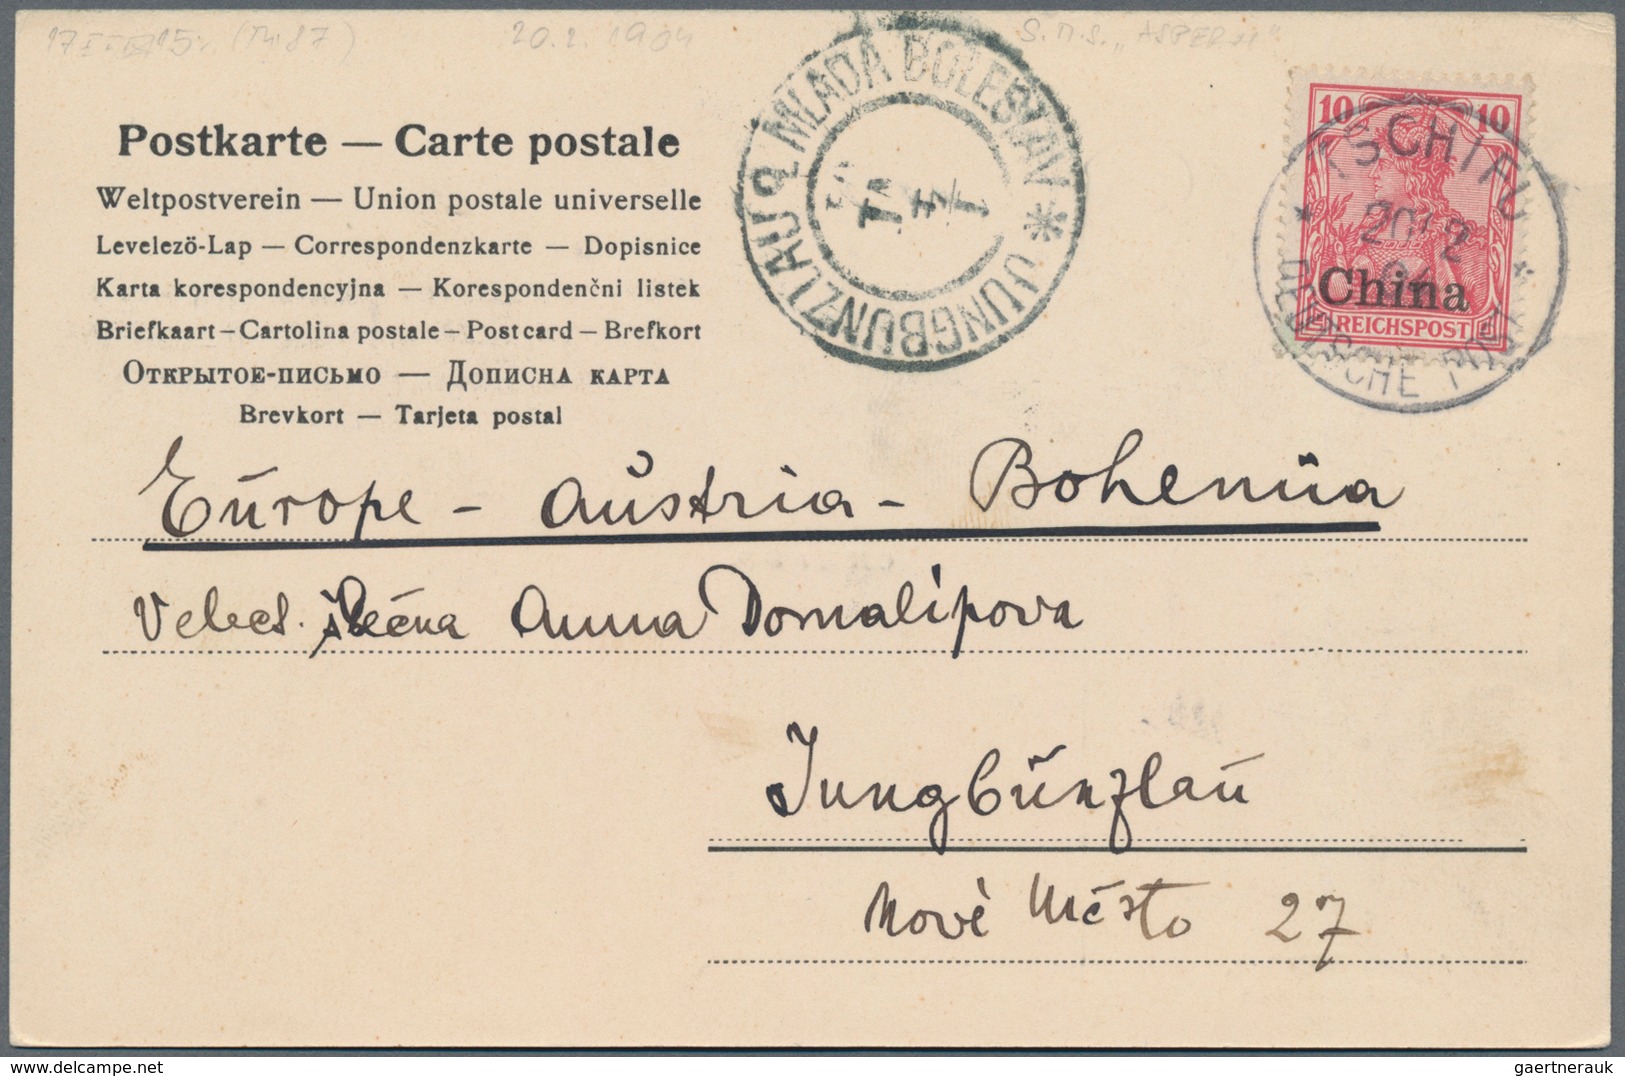 20.2.1904
S.M.S. „ASPERN"
Postkarte — Carte postale
Weltpostverein — Union postale universelle
Levelezö-Lap — Correspondenzkarte — Dopisnice
Karta korespondencyjna — Korespondenčni listek
Briefkaart — Cartolina postale — Post card — Brefkort
Открытое-письмо — Дописна карта
Brevkort — Tarjeta postal
MLADA BOLESLAV * JUNGBUNZLAU 2
10 10
China
REICHSPOST
TSCHIFU
20/2
04
DEUTSCHE POST
Europe - Austria - Bohemia
Velect. slečna Anna Domalipova
Jungbunzlau
Nové Město 27
gaertnerauk